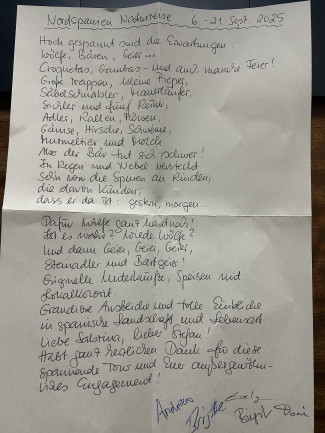 Nordspanien Naturreise 6.-21. Sept. 2025
Hoch gespannt sind die Erwartungen:
Wölfe, Bären, Geier...
Croquetas, Gambas - und auch manche Feier!
Große Trappen, kleine Pieper,
Säbelschnäbler, Mauerläufer,
Sichler und fünf Reiher,
Adler, Rallen, Möwen,
Gämse, Hirsche, Schweine,
Murmeltier und Molch
Nur der Bär tut sich schwer!
In Regen und Nebel versteckt
Sehn nur die Spuren an Rinden,
die davon künden,
dass er da ist: gestern, morgen...
Dafür Wölfe ganz hautnah!
Und dann Geier, Geier, Geier,
Steinadler und Bartgeier!
Originelle Unterkünfte, Speisen und
Lokalkolorit
Grandiose Ausblicke und tolle Einblicke
in spanische Landschaft und Lebensart
Liebe Sabrina, lieber Stefan!
Habt ganz herzlichen Dank für diese
spannende Tour und Euer außergewöhn-
liches Engagement!
Andreas
Birgit